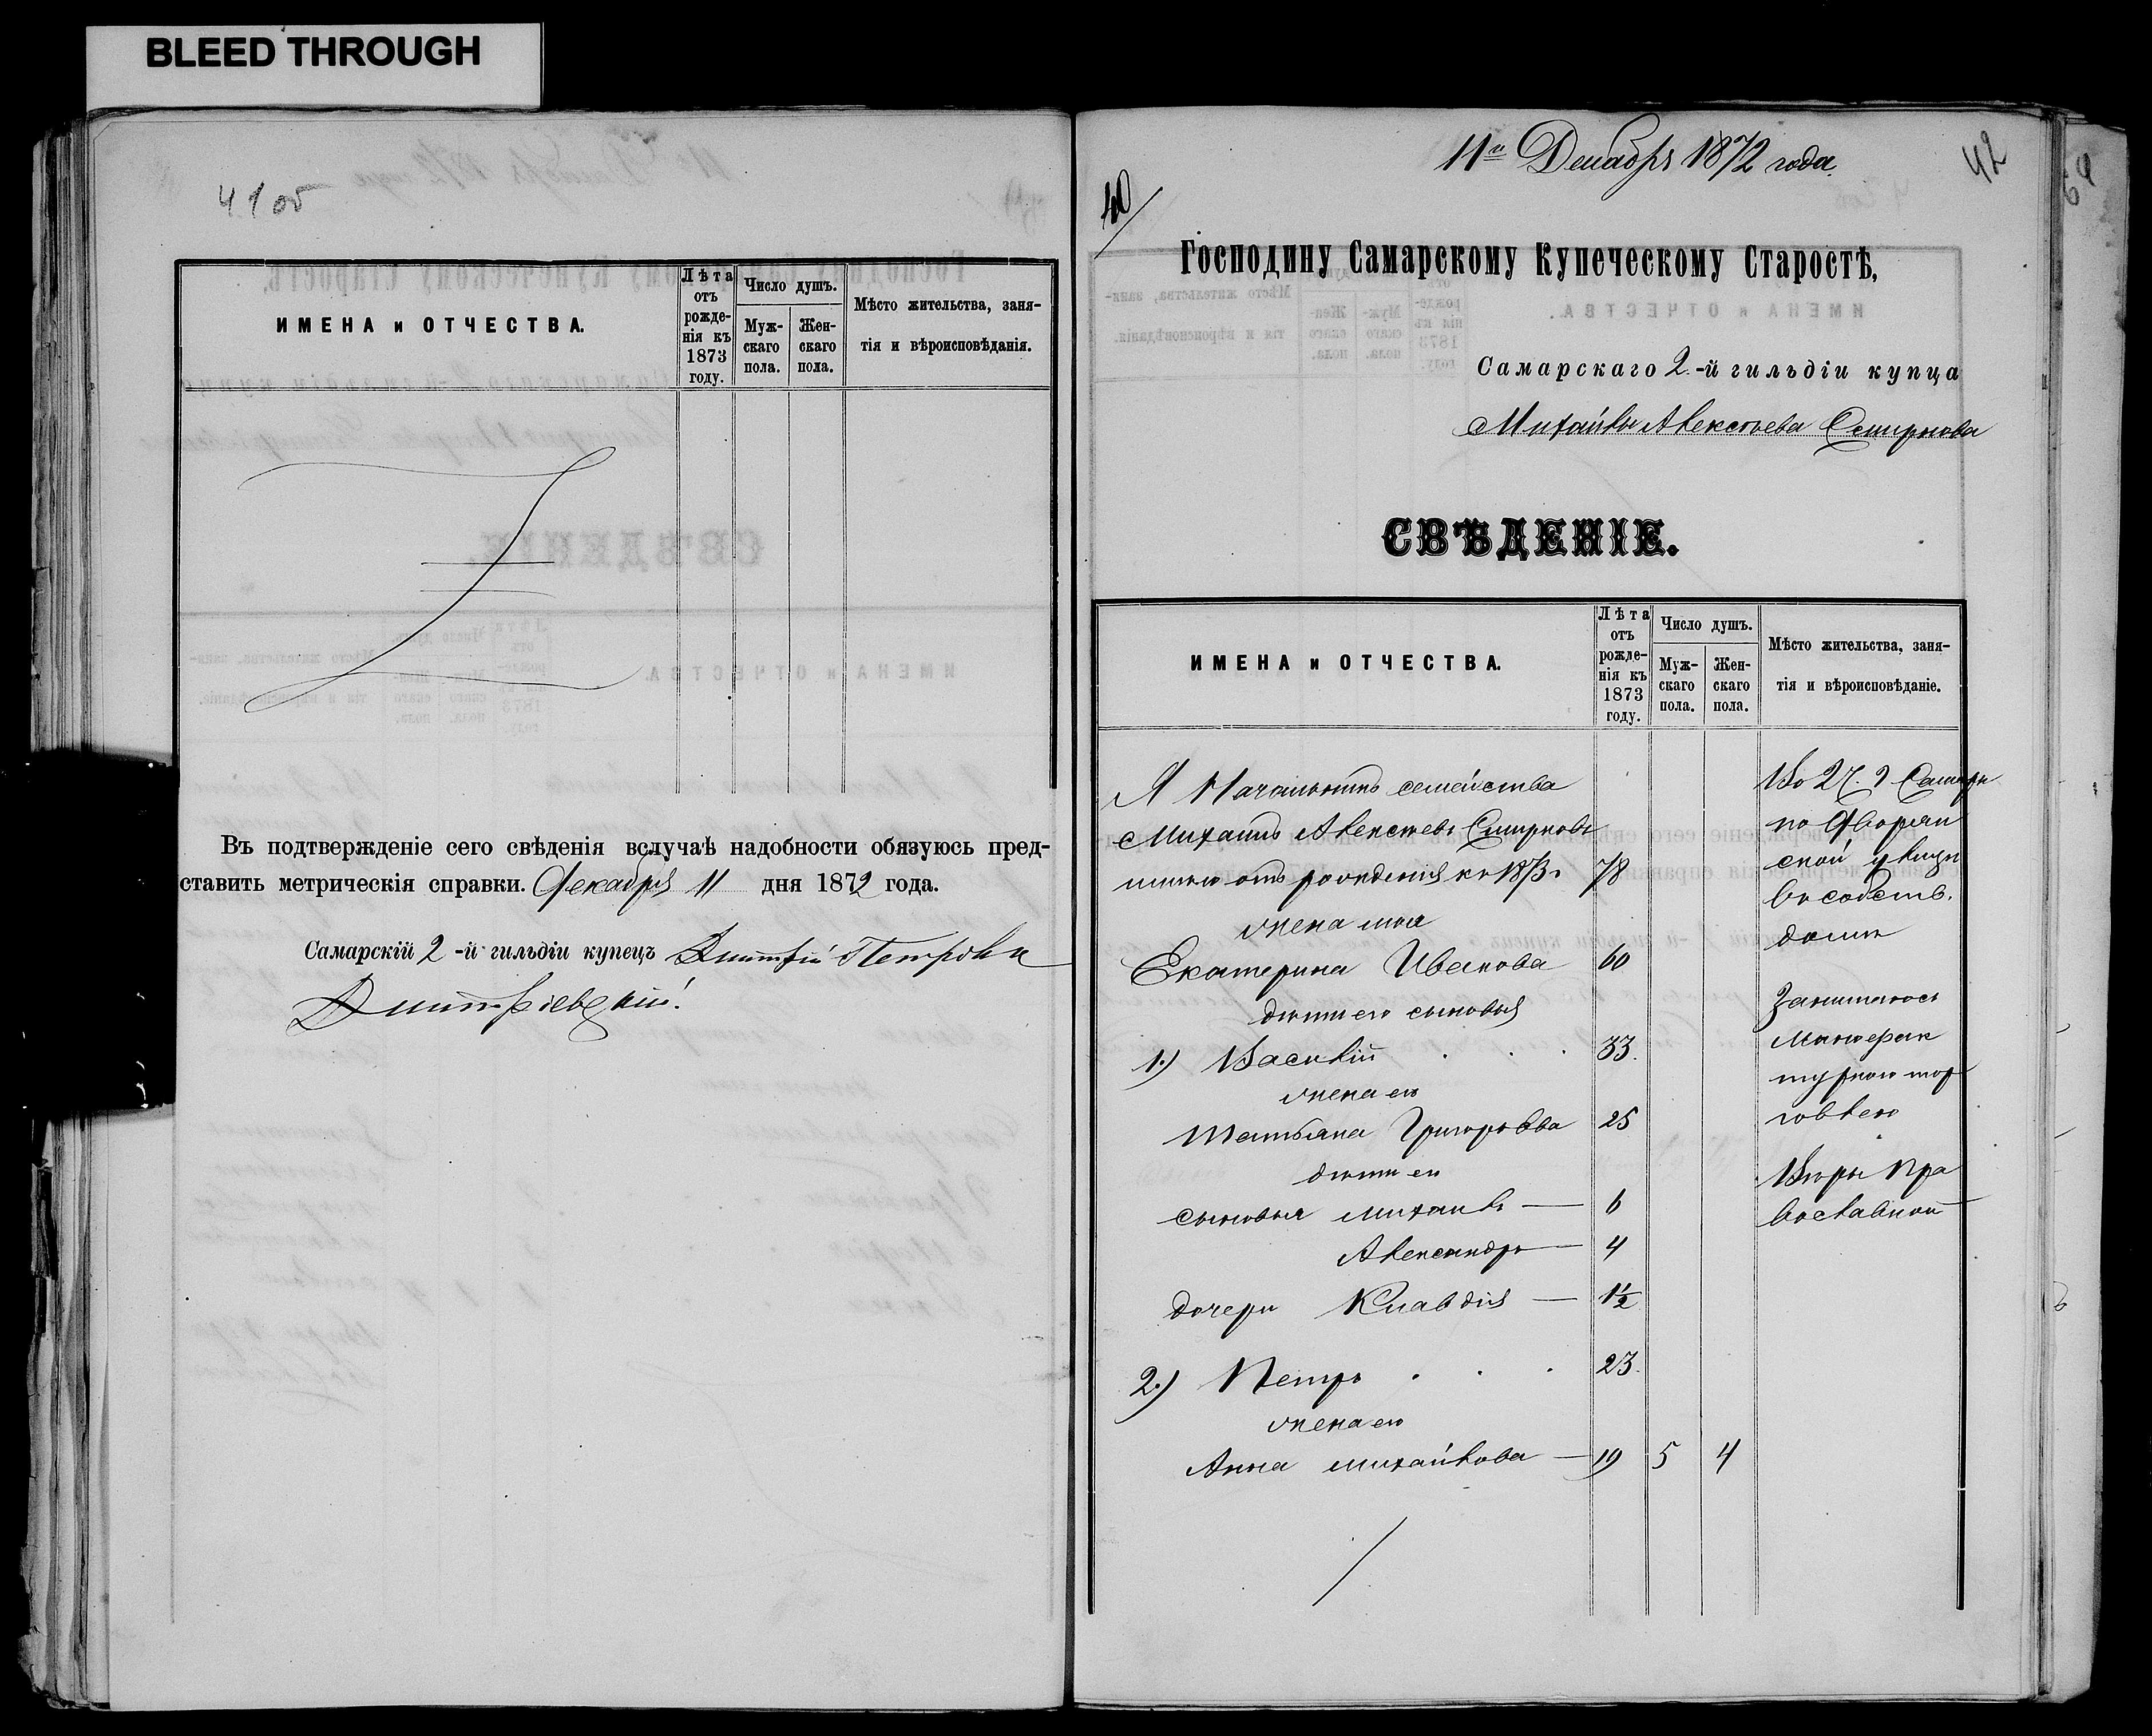 BLEED THROUGH
41 об
ИМЕНА и ОТЧЕСТВА.
Лѣта отъ рожденія къ 1873 году.
Число душъ.
Мужскаго пола.
Женскаго пола.
Мѣсто жительства, заня-
тія и вѣроисповѣданія.
Въ подтвержденіе сего свѣденія вслучаѣ надобности обязуюсь пред-
ставить метрическія справки. Декабря 11 дня 1872 года.
Самарскій 2-й гильдіи купецъ Дмитрій Петровъ
Дмитріевскій.
11го Декабря 1872 года.
42
64
40
Господину Самарскому Купеческому Старостѣ,
Самарскаго 2-й гильдіи купца
Михайлы Алексѣева Смирнова
СВѢДЕНІЕ.
ИМЕНА и ОТЧЕСТВА.
Лѣта отъ рожденія къ 1873 году.
Число душъ.
Мужскаго пола.
Женскаго пола.
Мѣсто жительства, заня-
тія и вѣроисповѣданіе.
Я Начальникъ семейства
Михаилъ Алексѣевъ Смирновъ
отъ рожденія къ 1873 г. 78
жена моя
Екатерина Иванова 60
дѣти его сыновья
1.) Василій . . . 33.
жена его
Татьяна Григорьева 25
дѣти его
сыновья Михаилъ — 6
Александръ — 4
дочери Клавдія — 1½
2.) Петръ . . . 23.
жена его
Анна Михайлова — 19 5 4
Во 2й Ч. г. Самары
по Дворян
ской улицѣ
въ собств.
домѣ
Занимаюсь
Мануфак
турною тор
говлею
Вѣры Пра
вославной